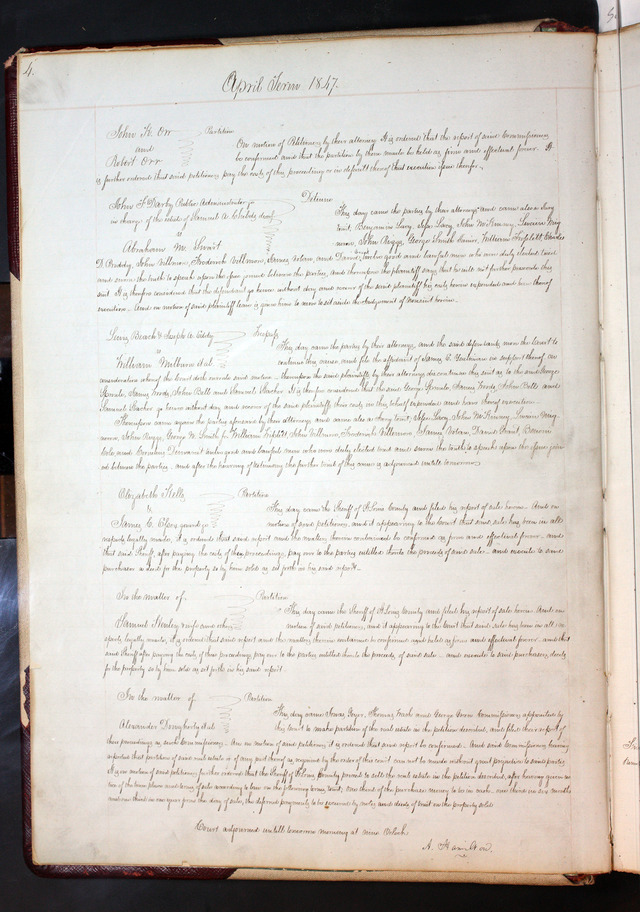 4.
April Term 1847.
John K. Orr
and
Robert Orr
Partition
On motion of Petitioners by their attorney it is ordered that the report of said Commissioners
be confirmed and that the partition by them made be held as firm and effectual forever. It
is further ordered that said petitioners pay the costs of this proceeding or in default thereof that execution issue therefor.
John F. Darby Public Administrator &
in charge of the estate of Samuel A. decd
vs
Abraham M.
Detinue
This day came the parties by their attorneys and came also a Jury
towit, Benjamin Lacy, John McKinney,
John Riggs, George Smith Junior, William Triplett, Charles
D. Priddy, John Villmow, Frederick Villmow, James Nolan, and David good and lawful men who were duly elected tried
and sworn the truth to speak upon the issue joined between the parties, and thereupon the plaintiff says that he will not further prosecute this
suit. It is therefore considered that the defendant go hence without day and recover of the said plaintiff his costs herein expended and have thereof
execution. And on motion of said plaintiff leave is given him to move to set aside the Judgment of Nonsuit herein.
Levi Beach & Joseph A. Eddy
vs
William Milburn et al
Trespass
This day came the parties by their attorneys, and the said defendants move the Court to
continue this cause, and file the affidavit of James C. in support thereof on
consideration whereof the Court doth overrule said motion. thereupon the said plaintiffs by their attorneys discontinue this suit as to the said George
James John Bell and Samuel It is therefore considered that the said George James John Bell and
Samuel go hence without day and recover of the said plaintiffs their costs in this behalf expended and have thereof execution.
Thereupon came again the parties aforesaid by their attorneys and came also a Jury towit, Lacy, John McKinney,
John Riggs, George W. Smith Jr. William Triplett John Villmow, Frederick Villmow, James Nolan, David
Cole, and good and lawful men who were duly elected tried and sworn the truth to speak upon the issue join
ed between the parties, and after the hearing of testimony the further trial of this cause is adjourned untill tomorrow.
Elizabeth Kelly
vs
James C.
Partition
This day came the Sheriff of St Louis County and filed his report of sale herein. And on
motion of said petitioners, and it appearing to the Court that said sale has been in all
respects legally made, it is ordered that said report and the matters therein contained be confirmed as firm and effectual forever. and
that said Sheriff, after paying the costs of these proceedings, pay over to the parties entitled thereto the proceeds of said sale. and execute to said
purchaser a deed for the property so by him sold as set forth in his said report.
In the matter of
Samuel and others
Partition
This day came the Sheriff of St Louis County and filed his report of sale herein. And on
motion of said petitioners, and it appearing to the Court that said sale has been in all re-
spects legally made, it is ordered that said report and the matters therein contained be confirmed and held as firm and effectual forever. and that
said Sheriff after paying the costs of these proceedings, pay over to the parties entitled thereto the proceeds of said sale. and execute to said purchasers, deeds
for the property so by him sold as set forth in his said report.
In the matter of
Alexander Dougherty et al
Partition
This day came Thomas and George Commissioners appointed by
this Court to make partition of the real estate in the petition described, and filed their report of
their proceedings as such Commissioners. And on motion of said petitioners, it is ordered that said report be confirmed. And said Commissioners having
reported that partition of said real estate or of any part thereof as required by the order of this Court can not be made without great prejudice to said parties
It is on motion of said petitioners further ordered that the Sheriff of St Louis County proceed to sell the real estate in the petition described, after having given no-
tice of the time place and terms of sale according to law on the following terms, towit, One third of the purchase money to be in cash, one third in six months
and one third in one year from the day of sale, the deferred payments to be secured by notes and deeds of trust on the property sold
Court adjourned untill tomorrow morning at nine OClock
A. Hamilton.